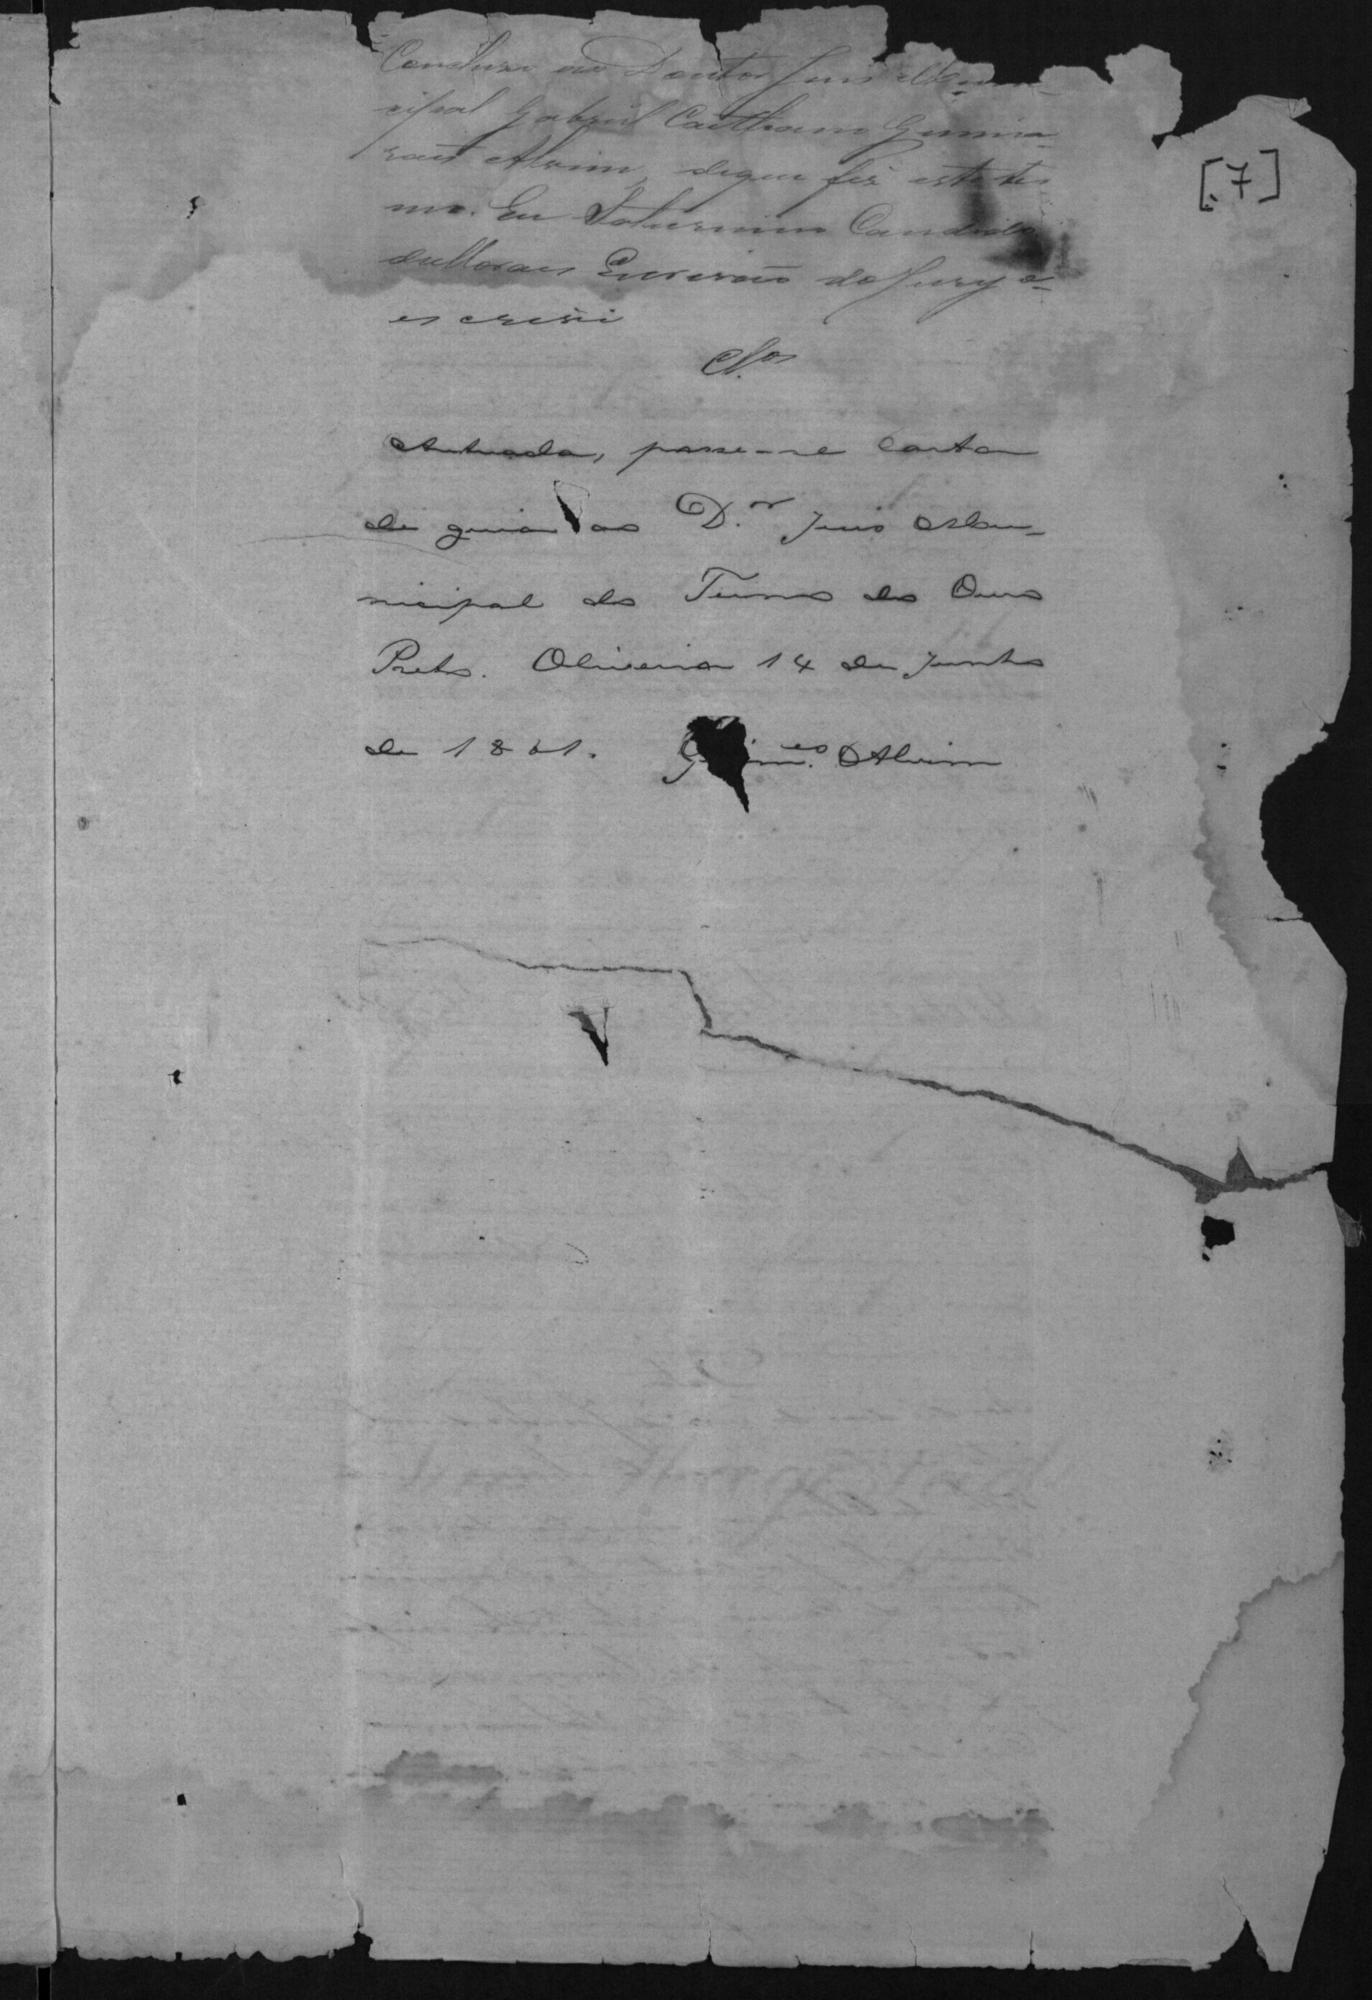 [7]
Conclusos ao Doutor Juis Muni-
cipal Gabriel Caethano Guima-
raes Alvim, deque fis este ter
mo. Eu Saturnino Candido
deMoraes Escrivão doJury o-
escrevi
Cl.os
Autuada, passe-se carta
de guia ao D.r Juis Mu-
nicipal do Termo do Ouro
Preto. Oliveira 14 de Junho
de 1861. G im.es Alvim